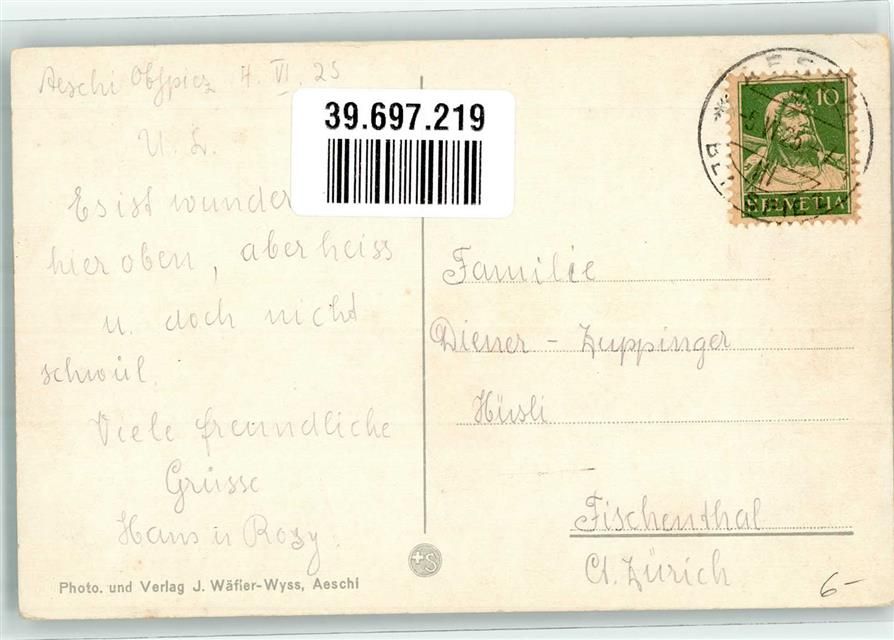 Aeschi Obspiez 4. VI. 25
39.697.219
U. L.
Es ist wunder
hier oben, aber heiss
u. doch nicht
schwül.
Viele freundliche
Grüsse
Hans u Rosy.
Photo. und Verlag J. Wäfler-Wyss, Aeschi
+S
10
HELVETIA
Familie
Diener - Zuppinger
Hüsli
Fischenthal
Ct. Zürich
6-